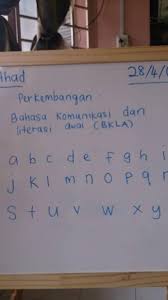 Ahad 28/4/
Perkembangan
Bahasa Komunikasi dan
literasi awal (BKLA)
a b c d e f g h i
J K l m n o p q r
S t u v w x y